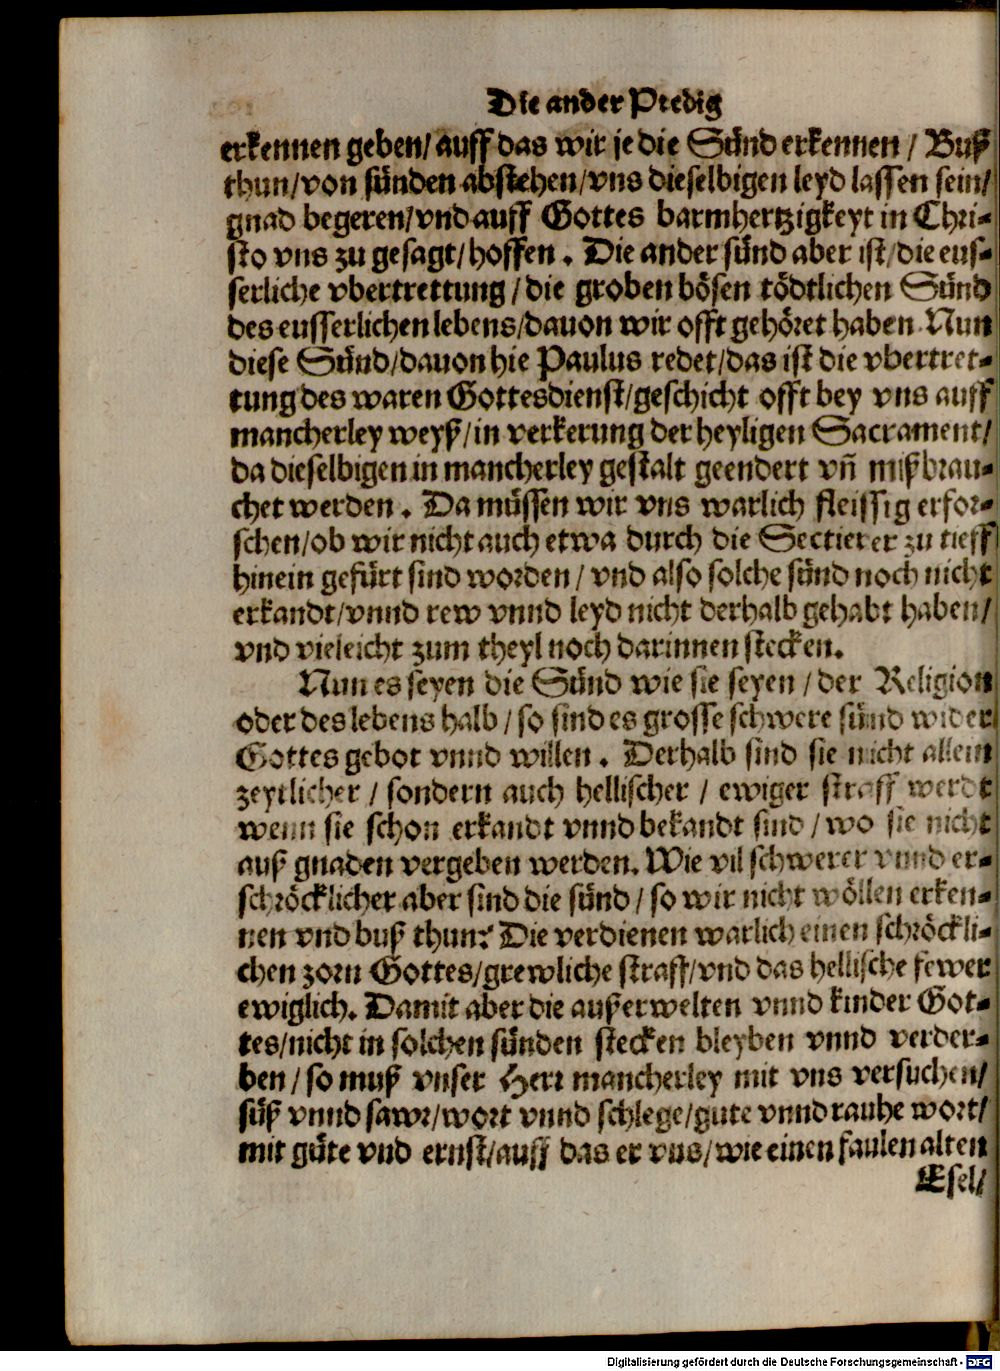 Die ander Predig
erkennen geben/ auff das wir je die Sünd erkennen / Buß
thun/von sünden abstehen/vns dieselbigen leyd lassen sein/
gnad begeren/vnd auff Gottes barmhertzigkeyt in Chri-
sto vns zu gesagt/hoffen. Die ander sünd aber ist/die eus-
serliche vbertrettung/die groben bösen tödtlichen Sünd
des eusserlichen lebens/dauon wir offt gehöret haben. Nun
diese Sünd/dauon hie Paulus redet/das ist die vbertret-
tung des waren Gottesdienst/geschicht offt bey vns auff
mancherley weyß/in verkerung der heyligen Sacrament/
da dieselbigen in mancherley gestalt geendert vñ mißbrau-
chet werden. Da müssen wir vns warlich fleissig erfor-
schen/ob wir nicht auch etwa durch die Sectierer zu tieff
hinein gefürt sind worden/ vnd also solche sünd noch nicht
erkandt/vnnd rew vnnd leyd nicht derhalb gehabt haben/
vnd vieleicht zum theyl noch darinnen stecken.
Nun es seyen die Sünd wie sie seyen/der Religion
oder des lebens halb/so sind es grosse schwere sünd wider
Gottes gebot vnnd willen. Derhalb sind sie nicht allein
zeytlicher / sondern auch hellischer / ewiger straff werdt
wenn sie schon erkandt vnnd bekandt sind/wo sie nicht
auß gnaden vergeben werden. Wie vil schwerer vnnd er-
schröcklicher aber sind die sünd/so wir nicht wöllen erken-
nen vnd buß thun? Die verdienen warlich einen schröckli-
chen zorn Gottes/grewliche straff/vnd das hellische fewer
ewiglich. Damit aber die außerwelten vnnd kinder Got-
tes/nicht in solchen sünden stecken bleyben vnnd verder-
ben/so muß vnser Herr mancherley mit vns versuchen/
süß vnnd sawr/wort vnnd schlege/gute vnnd rauhe wort/
mit güte vnd ernst/auff das er vns/wie einen faulen alten
Esel/
Digitalisierung gefördert durch die Deutsche Forschungsgemeinschaft - DFG